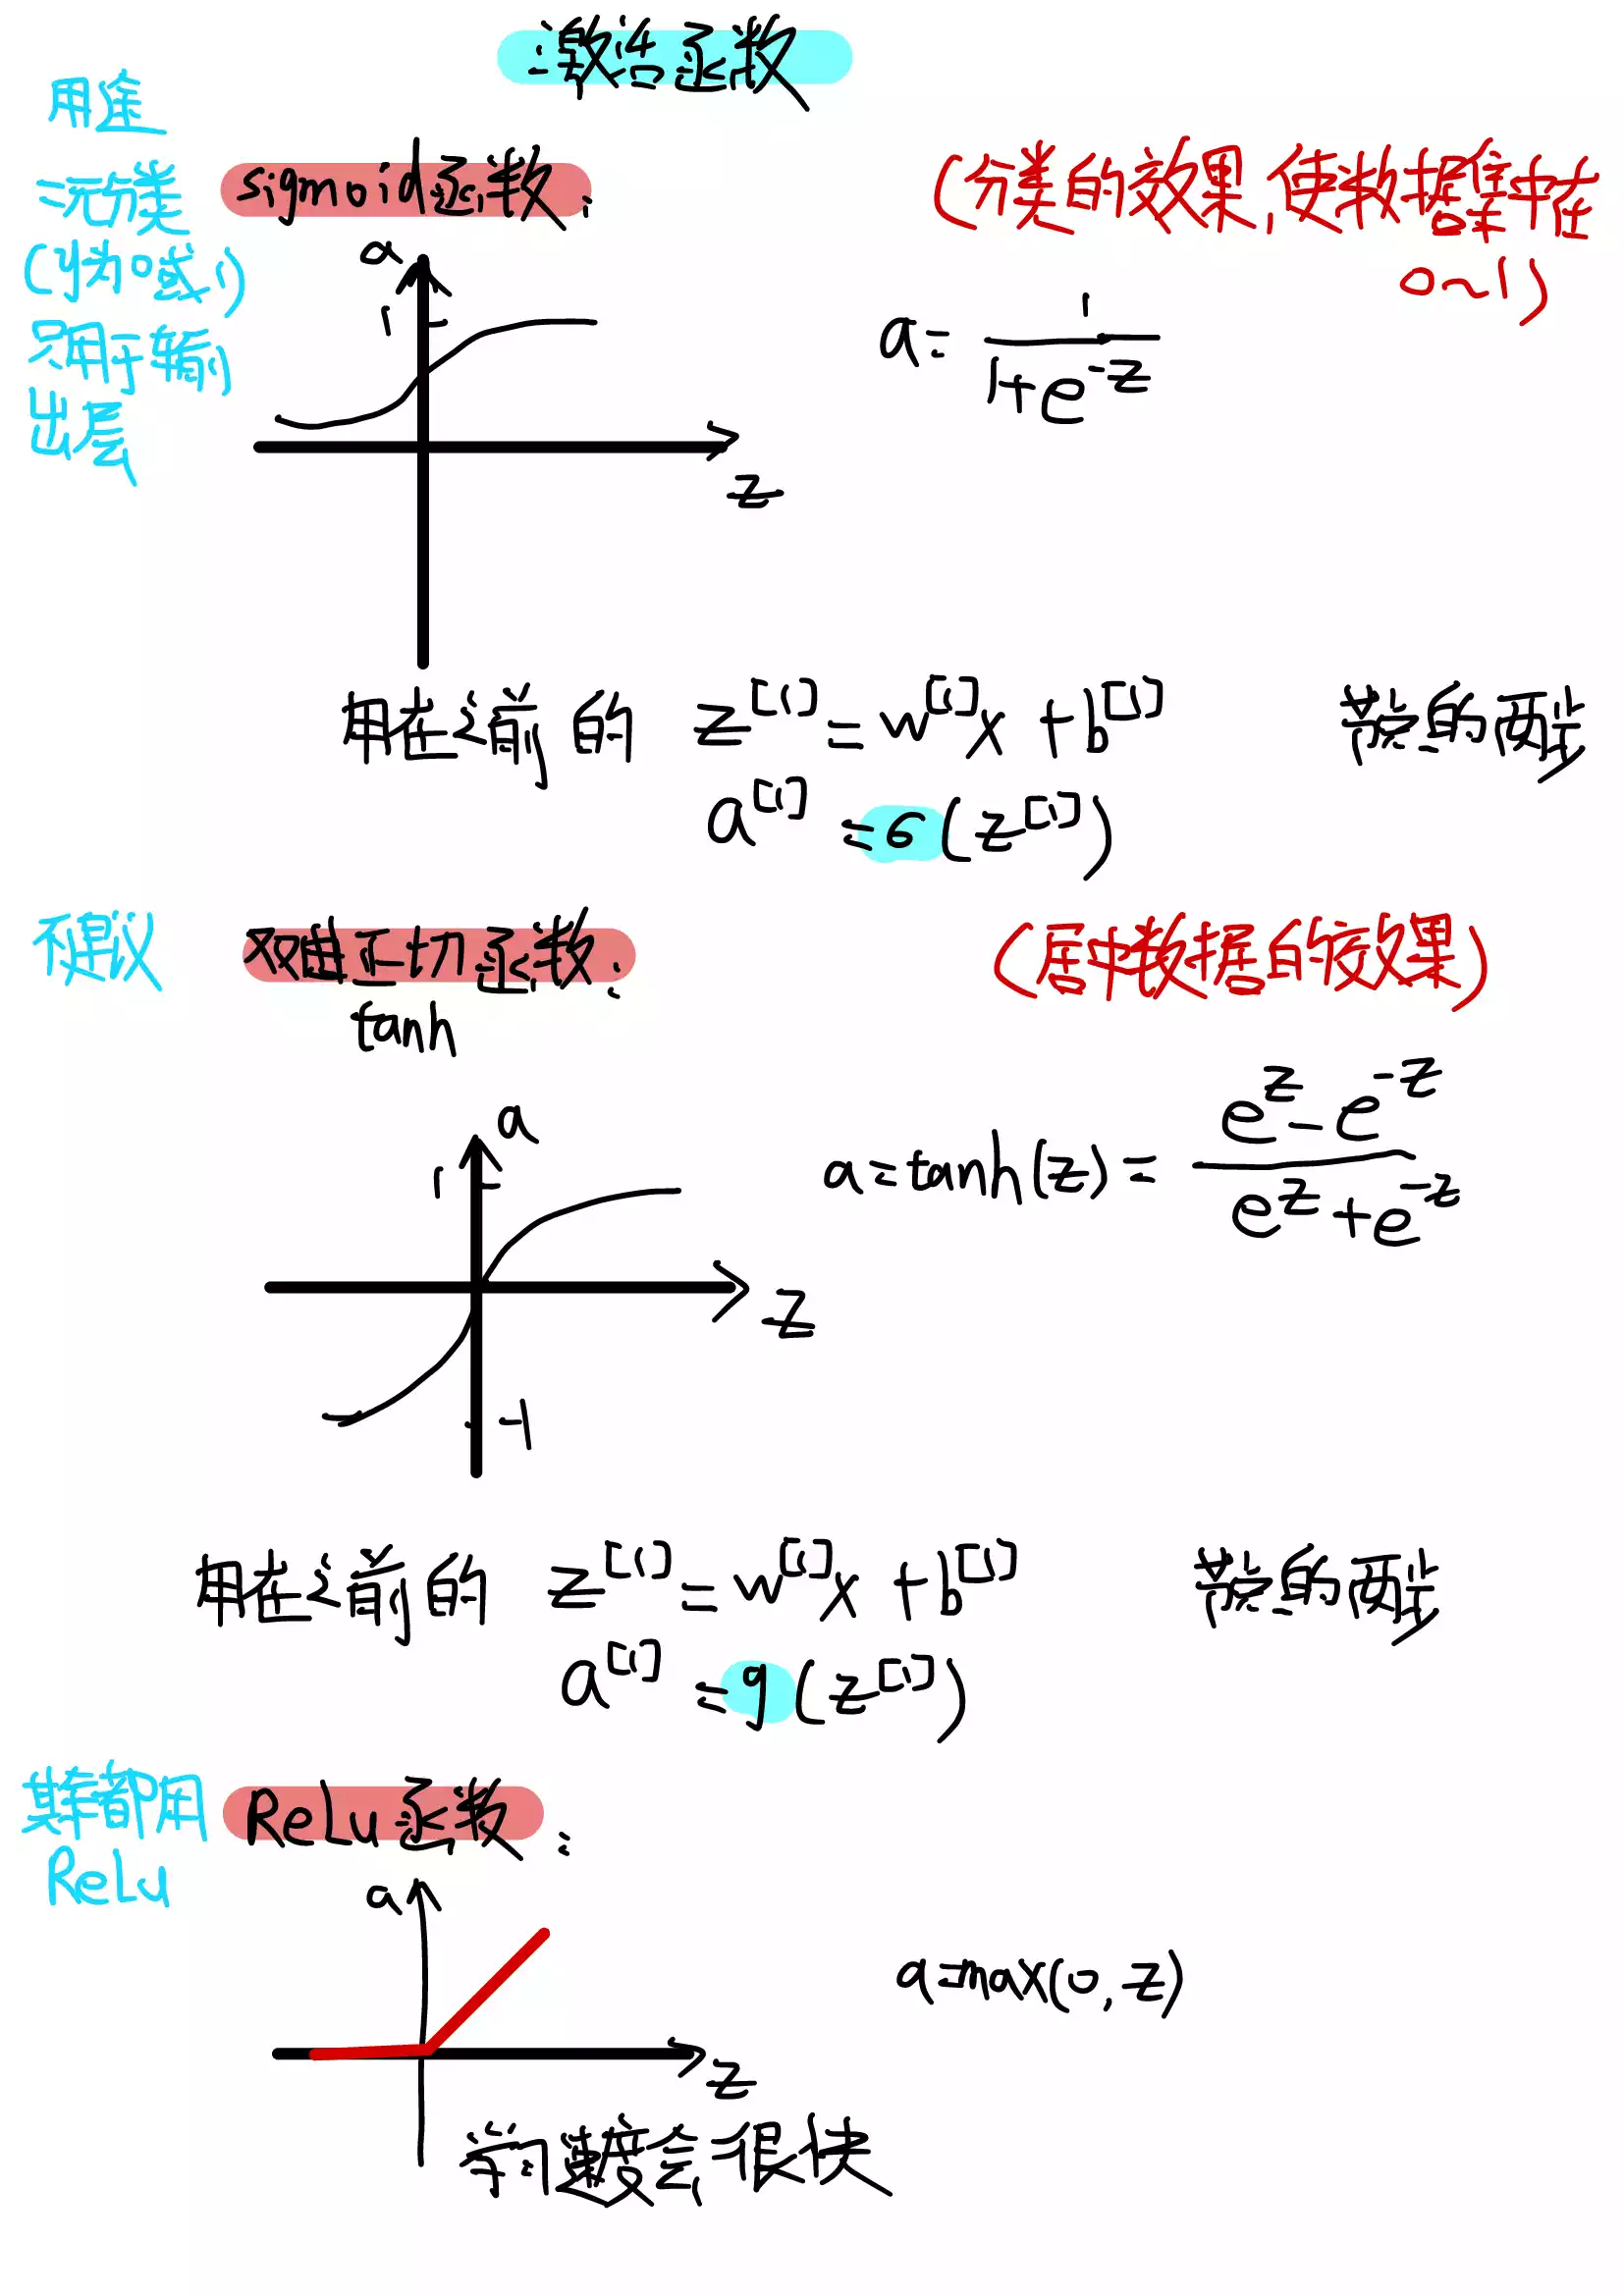 激活函数
用途
二元分类
(y为0或1)
只用于输
出层
sigmoid函数:
(分类的效果,使数据集中在
0~1)
a
1
z
a= 1/(1+e^-z)
用在之前的 z^[1]=w^[1]x+b^[1] 带的两步
a^[1]=σ(z^[1])
不建议
双曲正切函数:
tanh
(居中数据的效果)
a
1
z
-1
a=tanh(z)= (e^z-e^-z)/(e^z+e^-z)
用在之前的 z^[1]=w^[1]x+b^[1] 带的两步
a^[1]=g(z^[1])
都用
ReLu
ReLu函数:
a
z
a=max(0,z)
学习速度会很快